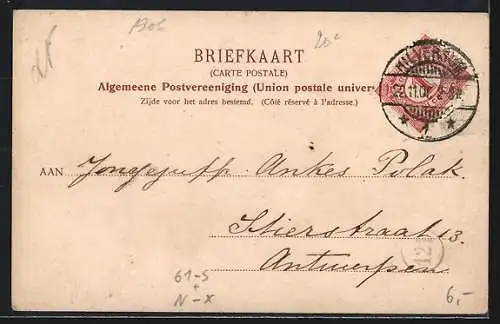 1906
20c
BRIEFKAART
(CARTE POSTALE)
Algemeene Postvereeniging (Union postale univer
Zijde voor het adres bestemd. (Côté réservé à l'adresse.)
HILVERSUM
AAN Jongejuff. Ankes Polak.
Stierstraat 13.
Antwerpen
12
61-S
+
N-X
6,-